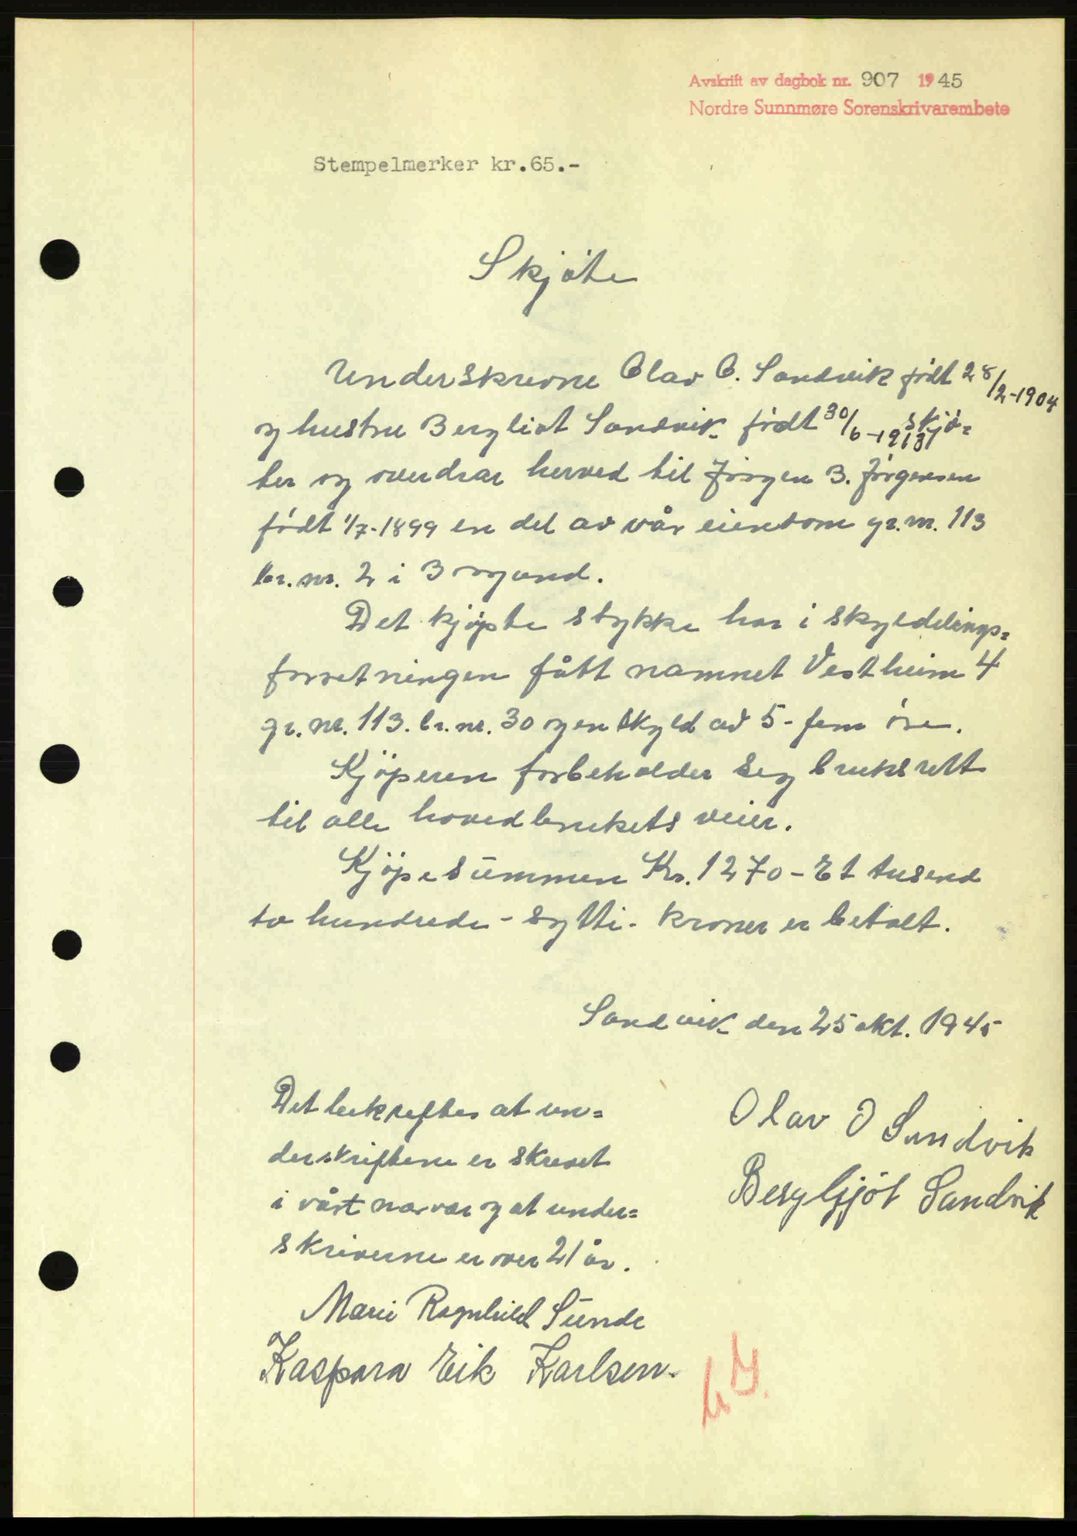 Avskrift av dagbok nr. 907 1945
Nordre Sunnmøre Sorenskrivarembete
Stempelmerker kr.65.-
Skjøte
Underskrevne Olav O. Sandvik født 28/2-1904
og hustru Bergliot Sandvik født 30/6-1913 skjø=
ter og overdrar herved til Jørgen B. Jørgensen
født 1/7-1899 en del av vår eiendom gr.nr. 113
br.nr. 2 i Brogund.
Det kjøpte stykke har i skylddelings=
forretningen fått namnet Vestheim 4
gr.nr. 113. br.nr. 30 og en skyld av 5- fem øre.
Kjøperen forbeholder seg bruksrett
til alle hovedbrukets veier.
Kjøpesummen Kr. 1270 - Et tusend
to hundrede - sytti - kroner er betalt.
Sandvik den 25 okt. 1945
Det bekreftes at un=
derskriftene er skrevet
i vårt nærvær og at under=
skriverne er over 21 år.
Olav O Sandvik
Bergljót Sandvik
Marie Ragnhild Sunde
Kaspara Eik Karlsen.